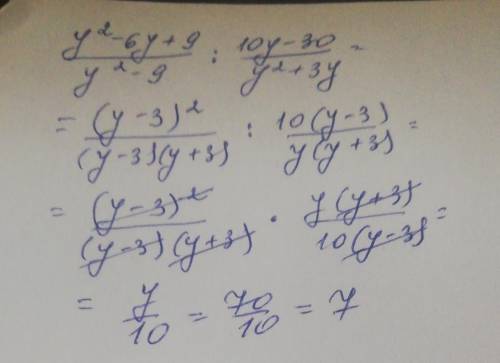 (y²-6y+9)/(y²-9) : (10y-30)/(y²+3y) =
= (y-3)²/((y-3)(y+3)) : 10(y-3)/(y(y+3)) =
= (y-3)²/((y-3)(y+3)) · y(y+3)/(10(y-3)) =
= y/10 = 70/10 = 7